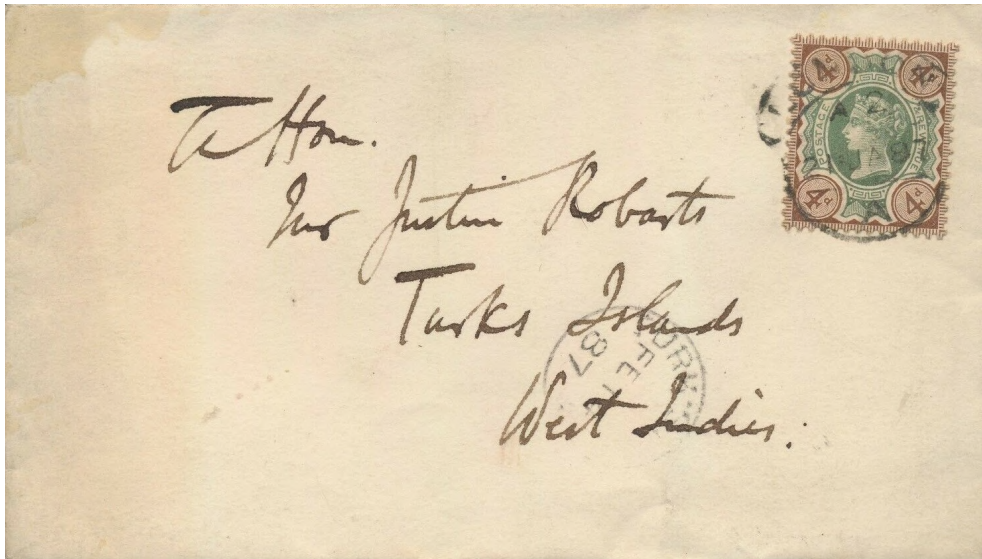 The Hon.
Mr Justin Robarts
Turks Islands
West Indies.
4d
4d
POSTAGE
REVENUE
4d
4d
FE
87